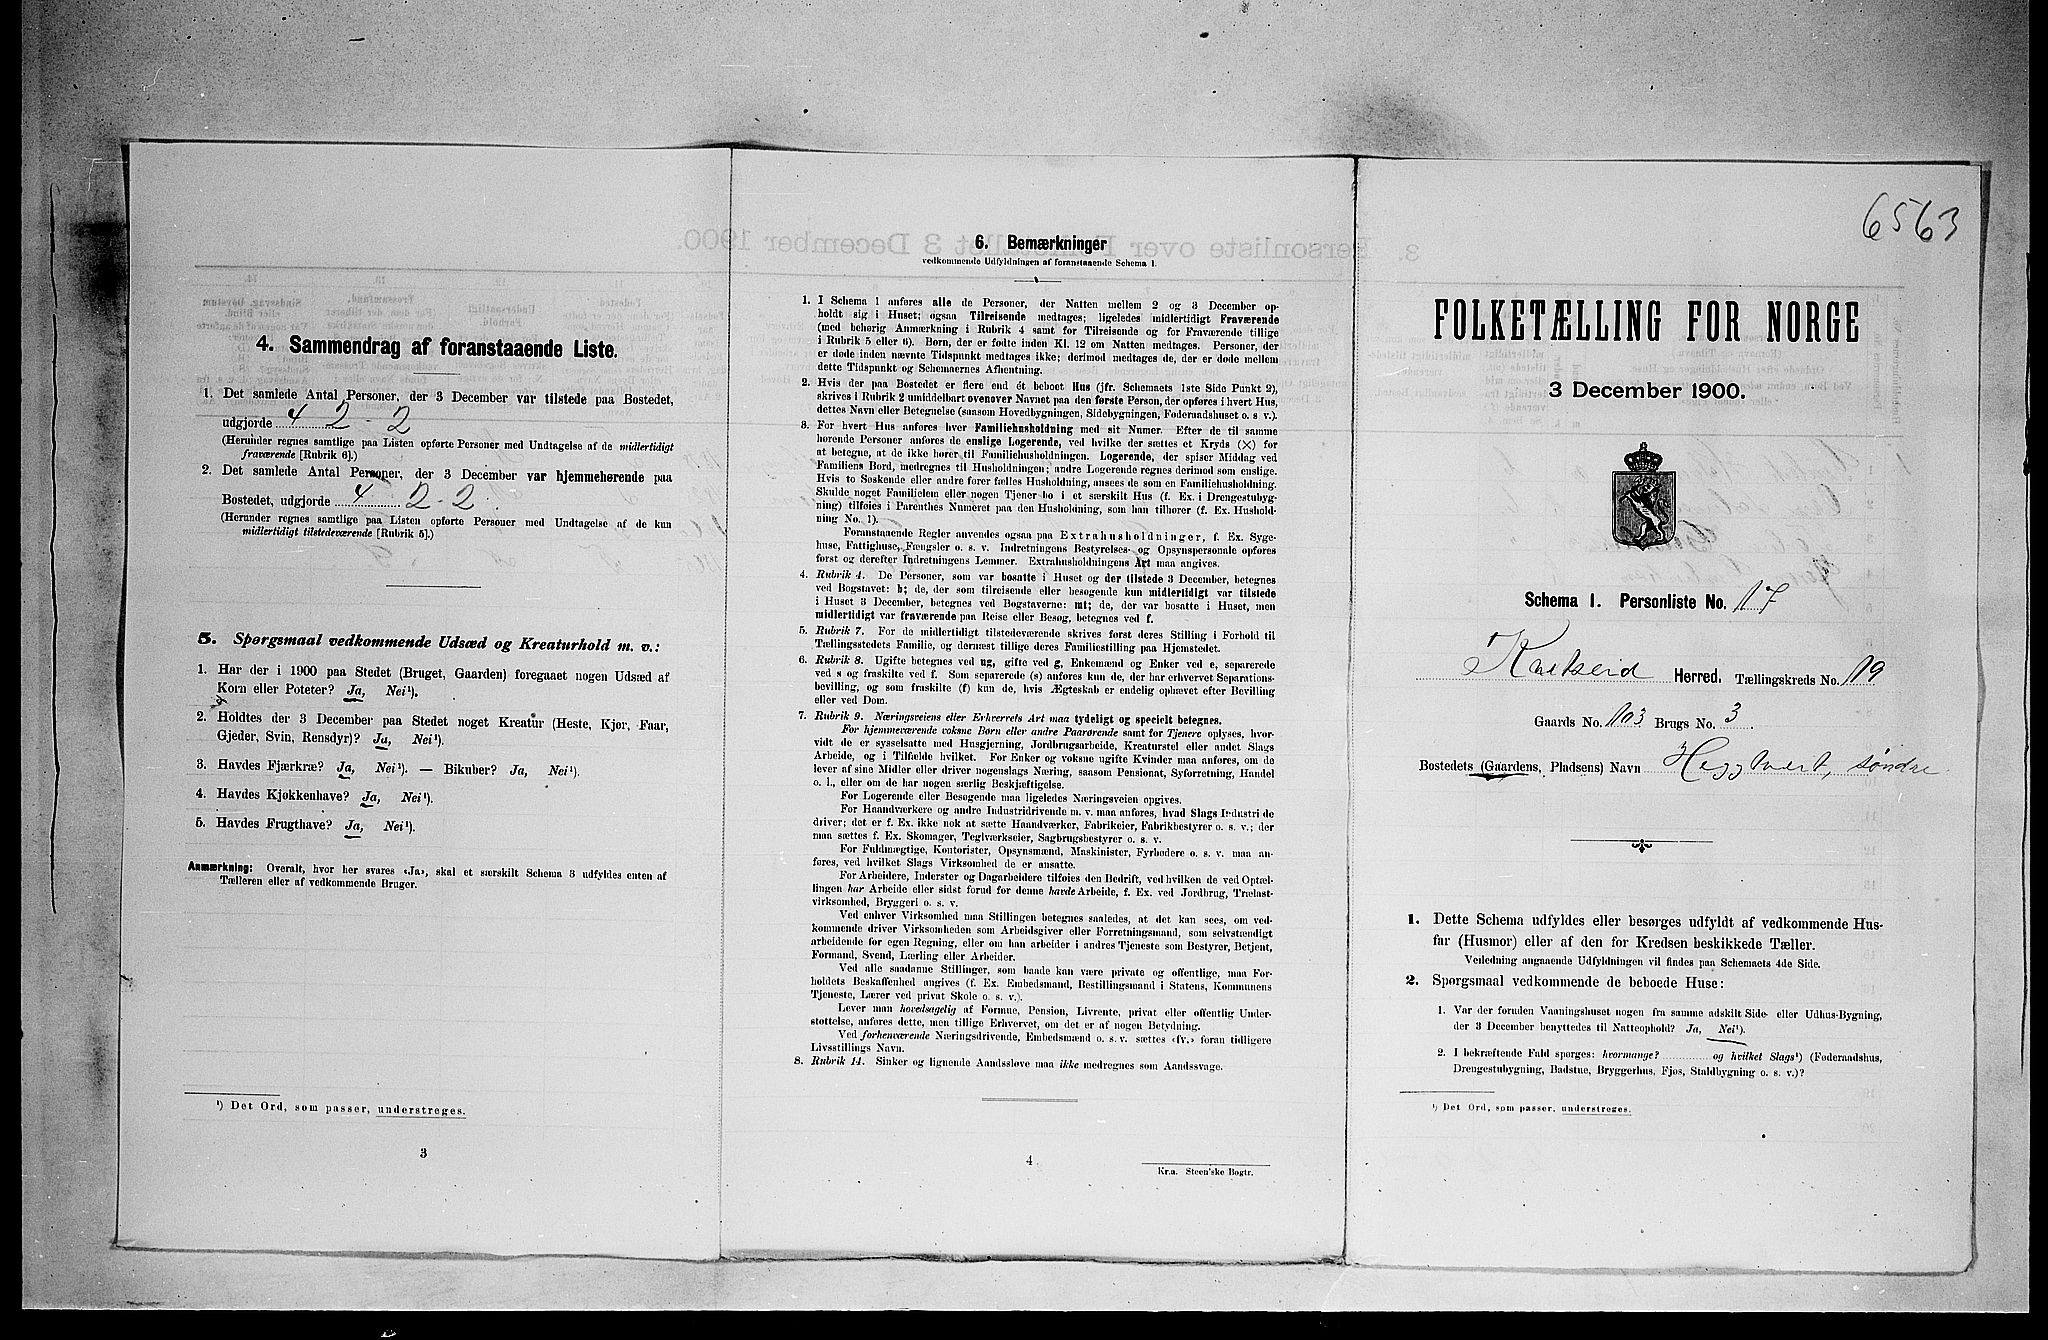 4. Sammendrag af foranstaaende Liste.
1. Det samlede Antal Personer, der 3 December var tilstede paa Bostedet,
udgjorde 4 2 - 2
(Herunder regnes samtlige paa Listen opførte Personer med Undtagelse af de midlertidigt
fraværende [Rubrik 6].)
2. Det samlede Antal Personer, der 3 December var hjemmehørende paa
Bostedet, udgjorde 4 2 - 2
(Herunder regnes samtlige paa Listen opførte Personer med Undtagelse af de kun
midlertidigt tilstedeværende [Rubrik 5].)
5. Spørgsmaal vedkommende Udsæd og Kreaturhold m. v.:
1. Har der i 1900 paa Stedet (Bruget, Gaarden) foregaaet nogen Udsæd af
Korn eller Poteter? Ja, Nei¹).
2. Holdtes der 3 December paa Stedet noget Kreatur (Heste, Kjør, Faar,
Gjeder, Svin, Rensdyr)? Ja, Nei¹).
3. Havdes Fjærkræ? Ja, Nei¹). — Bikuber? Ja, Nei¹).
4. Havdes Kjøkkenhave? Ja, Nei¹).
5. Havdes Frugthave? Ja, Nei¹).
Anmærkning: Overalt, hvor her svares «Ja», skal et særskilt Schema 3 udfyldes enten af
Tælleren eller af vedkommende Bruger.
¹) Det Ord, som passer, understreges.
3
6. Bemærkninger
vedkommende Udfyldningen af foranstaaende Schema 1.
1. I Schema 1 anføres alle de Personer, der Natten mellem 2 og 3 December op-
holdt sig i Huset; ogsaa Tilreisende medtages; ligeledes midlertidigt Fraværende
(med behørig Anmærkning i Rubrik 4 samt for Tilreisende og for Fraværende tillige
i Rubrik 5 eller 6). Børn, der er fødte inden Kl. 12 om Natten medtages. Personer, der
er døde inden nævnte Tidspunkt medtages ikke; derimod medtages de, der er døde mellem
dette Tidspunkt og Schemaernes Afhentning.
2. Hvis der paa Bostedet er flere end ét beboet Hus (jfr. Schemaets 1ste Side Punkt 2),
skrives i Rubrik 2 umiddelbart ovenover Navnet paa den første Person, der opføres i hvert Hus,
dettes Navn eller Betegnelse (saasom Hovedbygningen, Sidebygningen, Føderaadshuset o. s v.).
3. For hvert Hus anføres hver Familiehusholdning med sit Numer. Efter de til samme
hørende Personer anføres de enslige Logerende, ved hvilke der sættes et Kryds (×) for
at betegne, at de ikke hører til Familiehusholdningen. Logerende, der spiser Middag ved
Familiens Bord, medregnes til Husholdningen; andre Logerende regnes derimod som enslige.
Hvis to Søskende eller andre fører fælles Husholdning, ansees de som en Familiehusholdning.
Skulde noget Familielem eller nogen Tjener bo i et særskilt Hus (f. Ex. i Drengestubyg-
ning) tilføies i Parenthes Numeret paa den Husholdning, som han tilhører (f. Ex. Hushold-
ning No. 1).
Foranstaaende Regler anvendes ogsaa paa Extrahusholdninger, f. Ex. Syge-
huse, Fattighuse, Fængsler o. s. v. Indretningens Bestyrelses- og Opsynspersonale opføres
først og derefter Indretningens Lemmer. Extrahusholdningens Art maa angives.
4. Rubrik 4. De Personer, som var bosatte i Huset og der tilstede 3 December, betegnes
ved Bogstavet: b; de, der som tilreisende eller besøgende kun midlertidigt var tilstede
i Huset 3 December, betegnes ved Bogstaverne: mt; de, der var bosatte i Huset, men
midlertidigt var fraværende paa Reise eller Besøg, betegnes ved f.
5. Rubrik 7. For de midlertidigt tilstedeværende skrives først deres Stilling i Forhold til
Tællingsstedets Familie, og dernæst tillige deres Familiestilling paa Hjemstedet.
6. Rubrik 8. Ugifte betegnes ved ug, gifte ved g, Enkemænd og Enker ved e, separerede
ved s og fraskilte ved f. Som separerede (s) anføres kun de, der har erhvervet Separations-
bevilling, og som fraskilte (f) kun de, hvis Ægteskab er endelig ophævet efter Bevilling
eller ved Dom.
7. Rubrik 9. Næringsveiens eller Erhvervets Art maa tydeligt og specielt betegnes.
For hjemmeværende voksne Børn eller andre Paarørende samt for Tjenere oplyses, hvor-
vidt de er sysselsatte med Husgjerning, Jordbrugsarbeide, Kreaturstel eller andet Slags
Arbeide, og i Tilfælde hvilket. For Enker og voksne ugifte Kvinder maa anføres, om de
lever af sine Midler eller driver nogenslags Næring, saasom Pensionat, Syforretning, Handel
o. l., eller om de har nogen særlig Beskjæftigelse.
For Logerende eller Besøgende maa ligeledes Næringsveien opgives.
For Haandværkere og andre Industridrivende m. v. maa anføres, hvad Slags Industri de
driver; det er f. Ex. ikke nok at sætte Haandværker, Fabrikeier, Fabrikbestyrer o. s. v.; der
maa sættes f. Ex. Skomager, Teglværkseier, Sagbrugsbestyrer o. s. v.
For Fuldmægtige, Kontorister, Opsynsmænd, Maskinister, Fyrbødere o. s. v. maa an-
føres, ved hvilket Slags Virksomhed de er ansatte.
For Arbeidere, Inderster og Dagarbeidere tilføies den Bedrift, ved hvilken de ved Optæl-
lingen har Arbeide eller sidst forud for denne havde Arbeide, f. Ex. ved Jordbrug, Trælast-
virksomhed, Bryggeri o. s. v.
Ved enhver Virksomhed maa Stillingen betegnes saaledes, at det kan sees, om ved-
kommende driver Virksomheden som Arbeidsgiver eller Forretningsmand, som selvstændigt
arbeidende for egen Regning, eller om han arbeider i andres Tjeneste som Bestyrer, Betjent,
Formand, Svend, Lærling eller Arbeider.
Ved alle saadanne Stillinger, som baade kan være private og offentlige, maa For-
holdets Beskaffenhed angives (f. Ex. Embedsmand, Bestillingsmand i Statens, Kommunens
Tjeneste, Lærer ved privat Skole o. s. v.).
Lever man hovedsagelig af Formue, Pension, Livrente, privat eller offentlig Under-
støttelse, anføres dette, men tillige Erhvervet, om det er af nogen Betydning.
Ved forhenværende Næringsdrivende, Embedsmænd o. s. v. sættes «fv.» foran tidligere
Livsstillings Navn.
8. Rubrik 14. Sinker og lignende Aandssløve maa ikke medregnes som Aandssvage.
4
Kr.a. Steen'ske Bogtr.
6563
FOLKETÆLLING FOR NORGE
3 December 1900.
Schema 1. Personliste No. 17
Kviteseid Herred. Tællingskreds No. 19
Gaards No. 103 Brugs No. 3
Bostedets (Gaardens, Pladsens) Navn Heggtveit, søndre
1. Dette Schema udfyldes eller besørges udfyldt af vedkommende Hus-
far (Husmor) eller af den for Kredsen beskikkede Tæller.
Veiledning angaaende Udfyldningen vil findes paa Schemaets 4de Side.
2. Spørgsmaal vedkommende de beboede Huse:
1. Var der foruden Vaaningshuset nogen fra samme adskilt Side- eller Udhus-Bygning,
der 3 December benyttedes til Natteophold? Ja, Nei¹).
2. I bekræftende Fald spørges: hvormange? og hvilket Slags¹) (Føderaadshus,
Drengestubygning, Badstue, Bryggerhus, Fjøs, Staldbygning o. s. v.)?
¹) Det Ord, som passer, understreges.